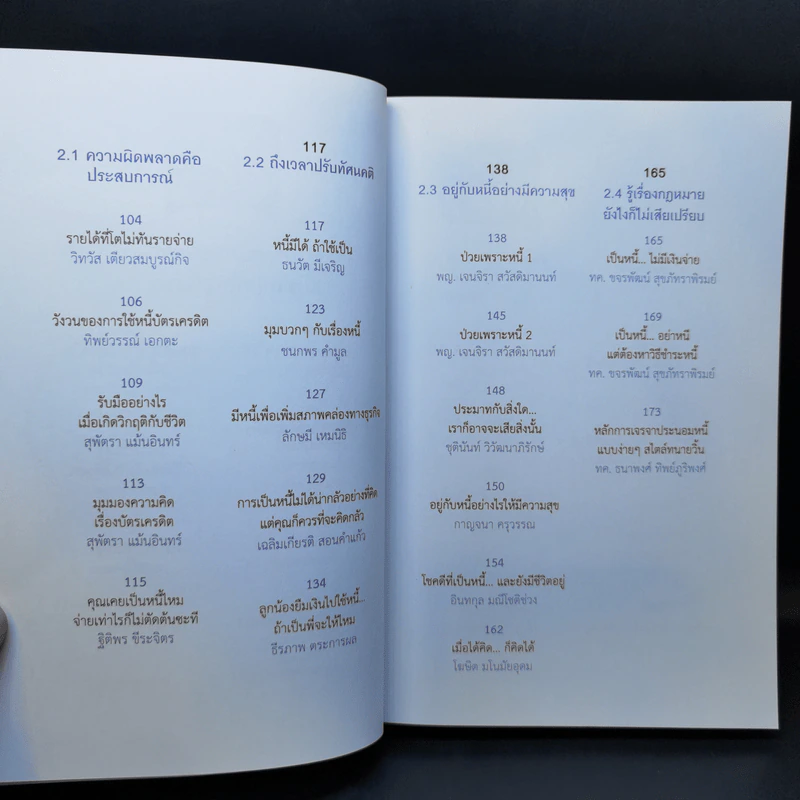 2.1 ความผิดพลาดคือ
ประสบการณ์
104
รายได้ที่โตไม่ทันรายจ่าย
วิทวัส เตียวสมบูรณ์กิจ
106
วังวนของการใช้หนี้บัตรเครดิต
ทิพย์วรรณ์ เอกตะ
109
รับมืออย่างไร
เมื่อเกิดวิกฤติกับชีวิต
สุพัตรา แม้นอินทร์
113
มุมมองความคิด
เรื่องบัตรเครดิต
สุพัตรา แม้นอินทร์
115
คุณเคยเป็นหนี้ไหม
จ่ายเท่าไรก็ไม่ตัดต้นซะที
ฐิติพร ชีระจิตร
117
2.2 ถึงเวลาปรับทัศนคติ
117
หนี้มีได้ ถ้าใช้เป็น
ธนวัต มีเจริญ
123
มุมบวกๆ กับเรื่องหนี้
ชนกพร คำมูล
127
มีหนี้เพื่อเพิ่มสภาพคล่องทางธุรกิจ
ลักษมี เหมนิธิ
129
การเป็นหนี้ไม่ได้น่ากลัวอย่างที่คิด
แต่คุณก็ควรที่จะคิดกลัว
เฉลิมเกียรติ สอนคำแก้ว
134
ลูกน้องยืมเงินไปใช้หนี้...
ถ้าเป็นพี่จะให้ไหม
ธีรภาพ ตระการผล
138
2.3 อยู่กับหนี้อย่างมีความสุข
138
ป่วยเพราะหนี้ 1
พญ. เจนจิรา สวัสดิมานนท์
145
ป่วยเพราะหนี้ 2
พญ. เจนจิรา สวัสดิมานนท์
148
ประมาทกับสิ่งใด...
เราก็อาจจะเสียสิ่งนั้น
ชุตินันท์ วิวัฒนาภิรักษ์
150
อยู่กับหนี้อย่างไรให้มีความสุข
กาญจนา ครุวรรณ
154
โชคดีที่เป็นหนี้... และยังมีชีวิตอยู่
อินทกุล มณีโชติช่วง
162
เมื่อได้คิด... ก็คิดได้
โฆษิต มโนมัยอุดม
165
2.4 รู้เรื่องกฎหมาย
ยังไงก็ไม่เสียเปรียบ
165
เป็นหนี้... ไม่มีเงินจ่าย
ทค. ขจรพัฒน์ สุขภัทราพิรมย์
169
เป็นหนี้... อย่าหนี
แต่ต้องหาวิธีชำระหนี้
ทค. ขจรพัฒน์ สุขภัทราพิรมย์
173
หลักการเจรจาประนอมหนี้
แบบง่ายๆ สไตล์ทนายวิ้น
ทค. ธนาพงศ์ ทิพย์ภูริพงศ์